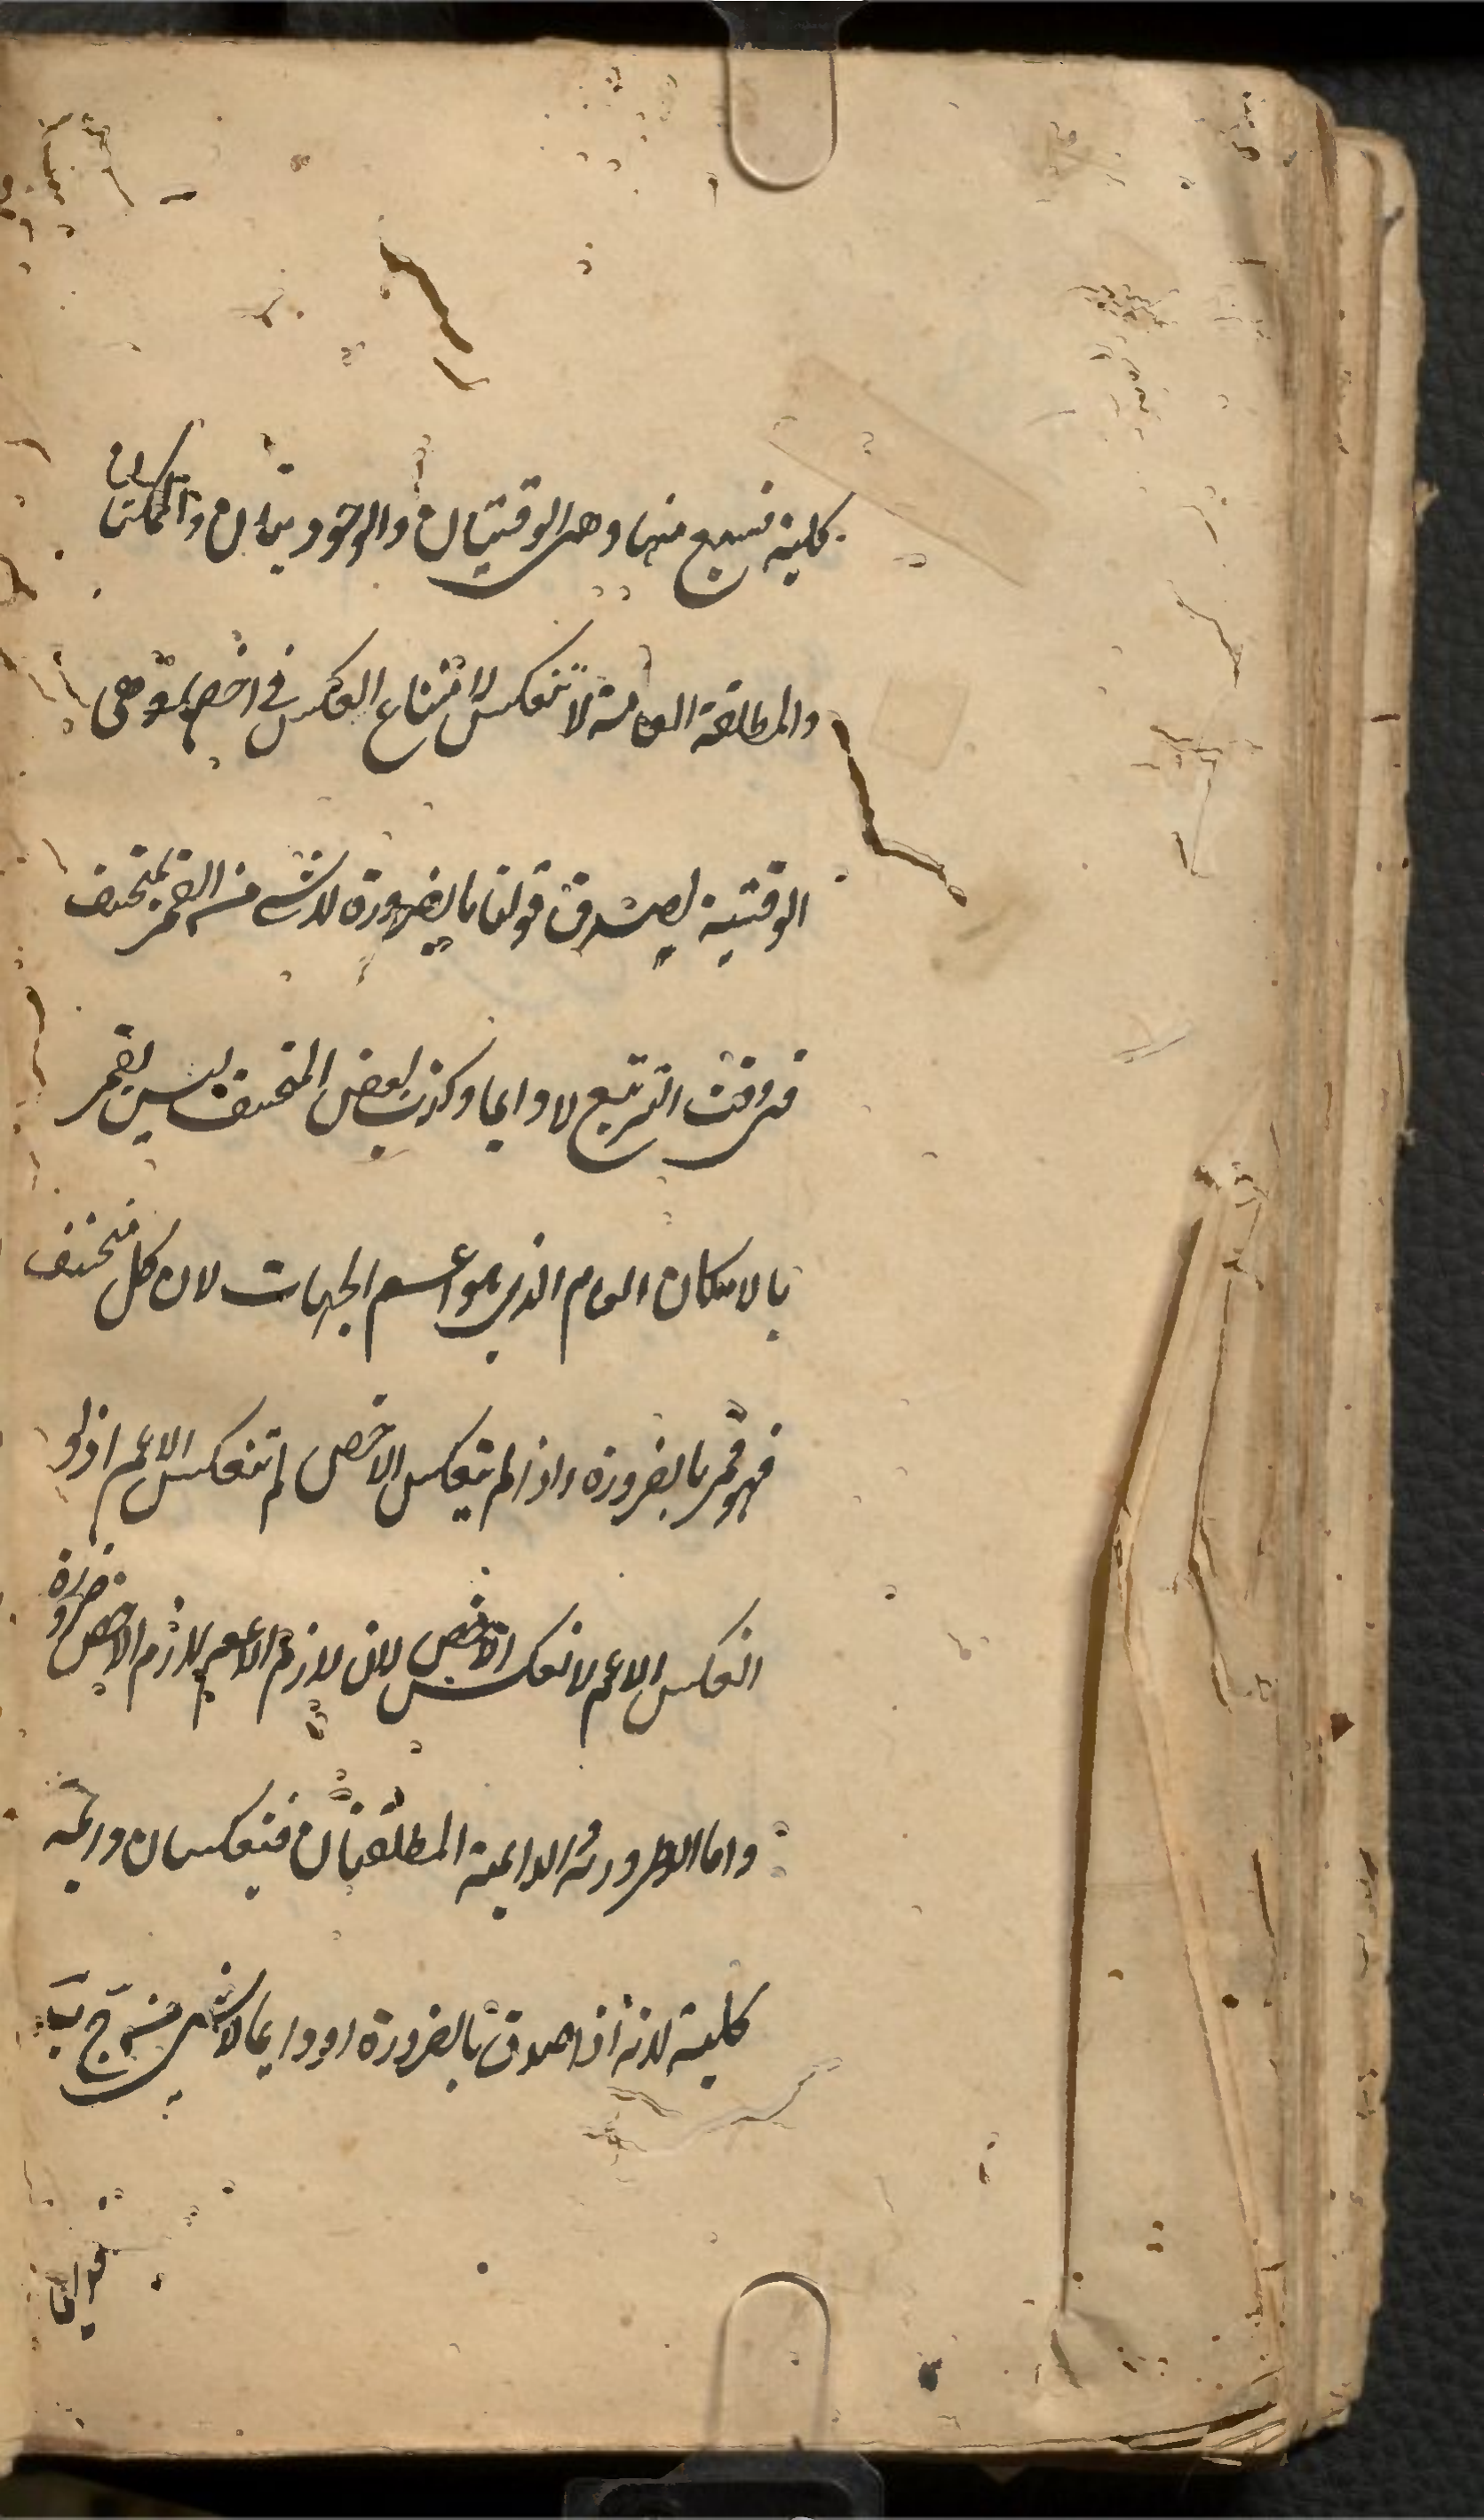 كلية فسبع منها وهى الوقتيتان والوجوديتان والممكنتان
والمطلقة العامة لا تنعكس لامتناع العكس في اخصها وهى
الوقتية لصدق قولنا بالضرورة لا شئ من القمر بمنخسف
فى وقت التربيع لا دايما وكذب بعض المنخسف ليس بقمر
بالامكان العام الذي هو اعم الجهات لان كل منخسف
فهو قمر بالضرورة واذا لم ينعكس الاخص لم تنعكس الاعم اذ لو
انعكس الاعم لانعكس الاخص لان لازم الاعم لازم الاخص ضرورة
واما الضرورية والدايمة المطلقتان فينعكسان دائمة
كلية لانه اذا صدق بالضرورة او دايما لا شى من ج ب